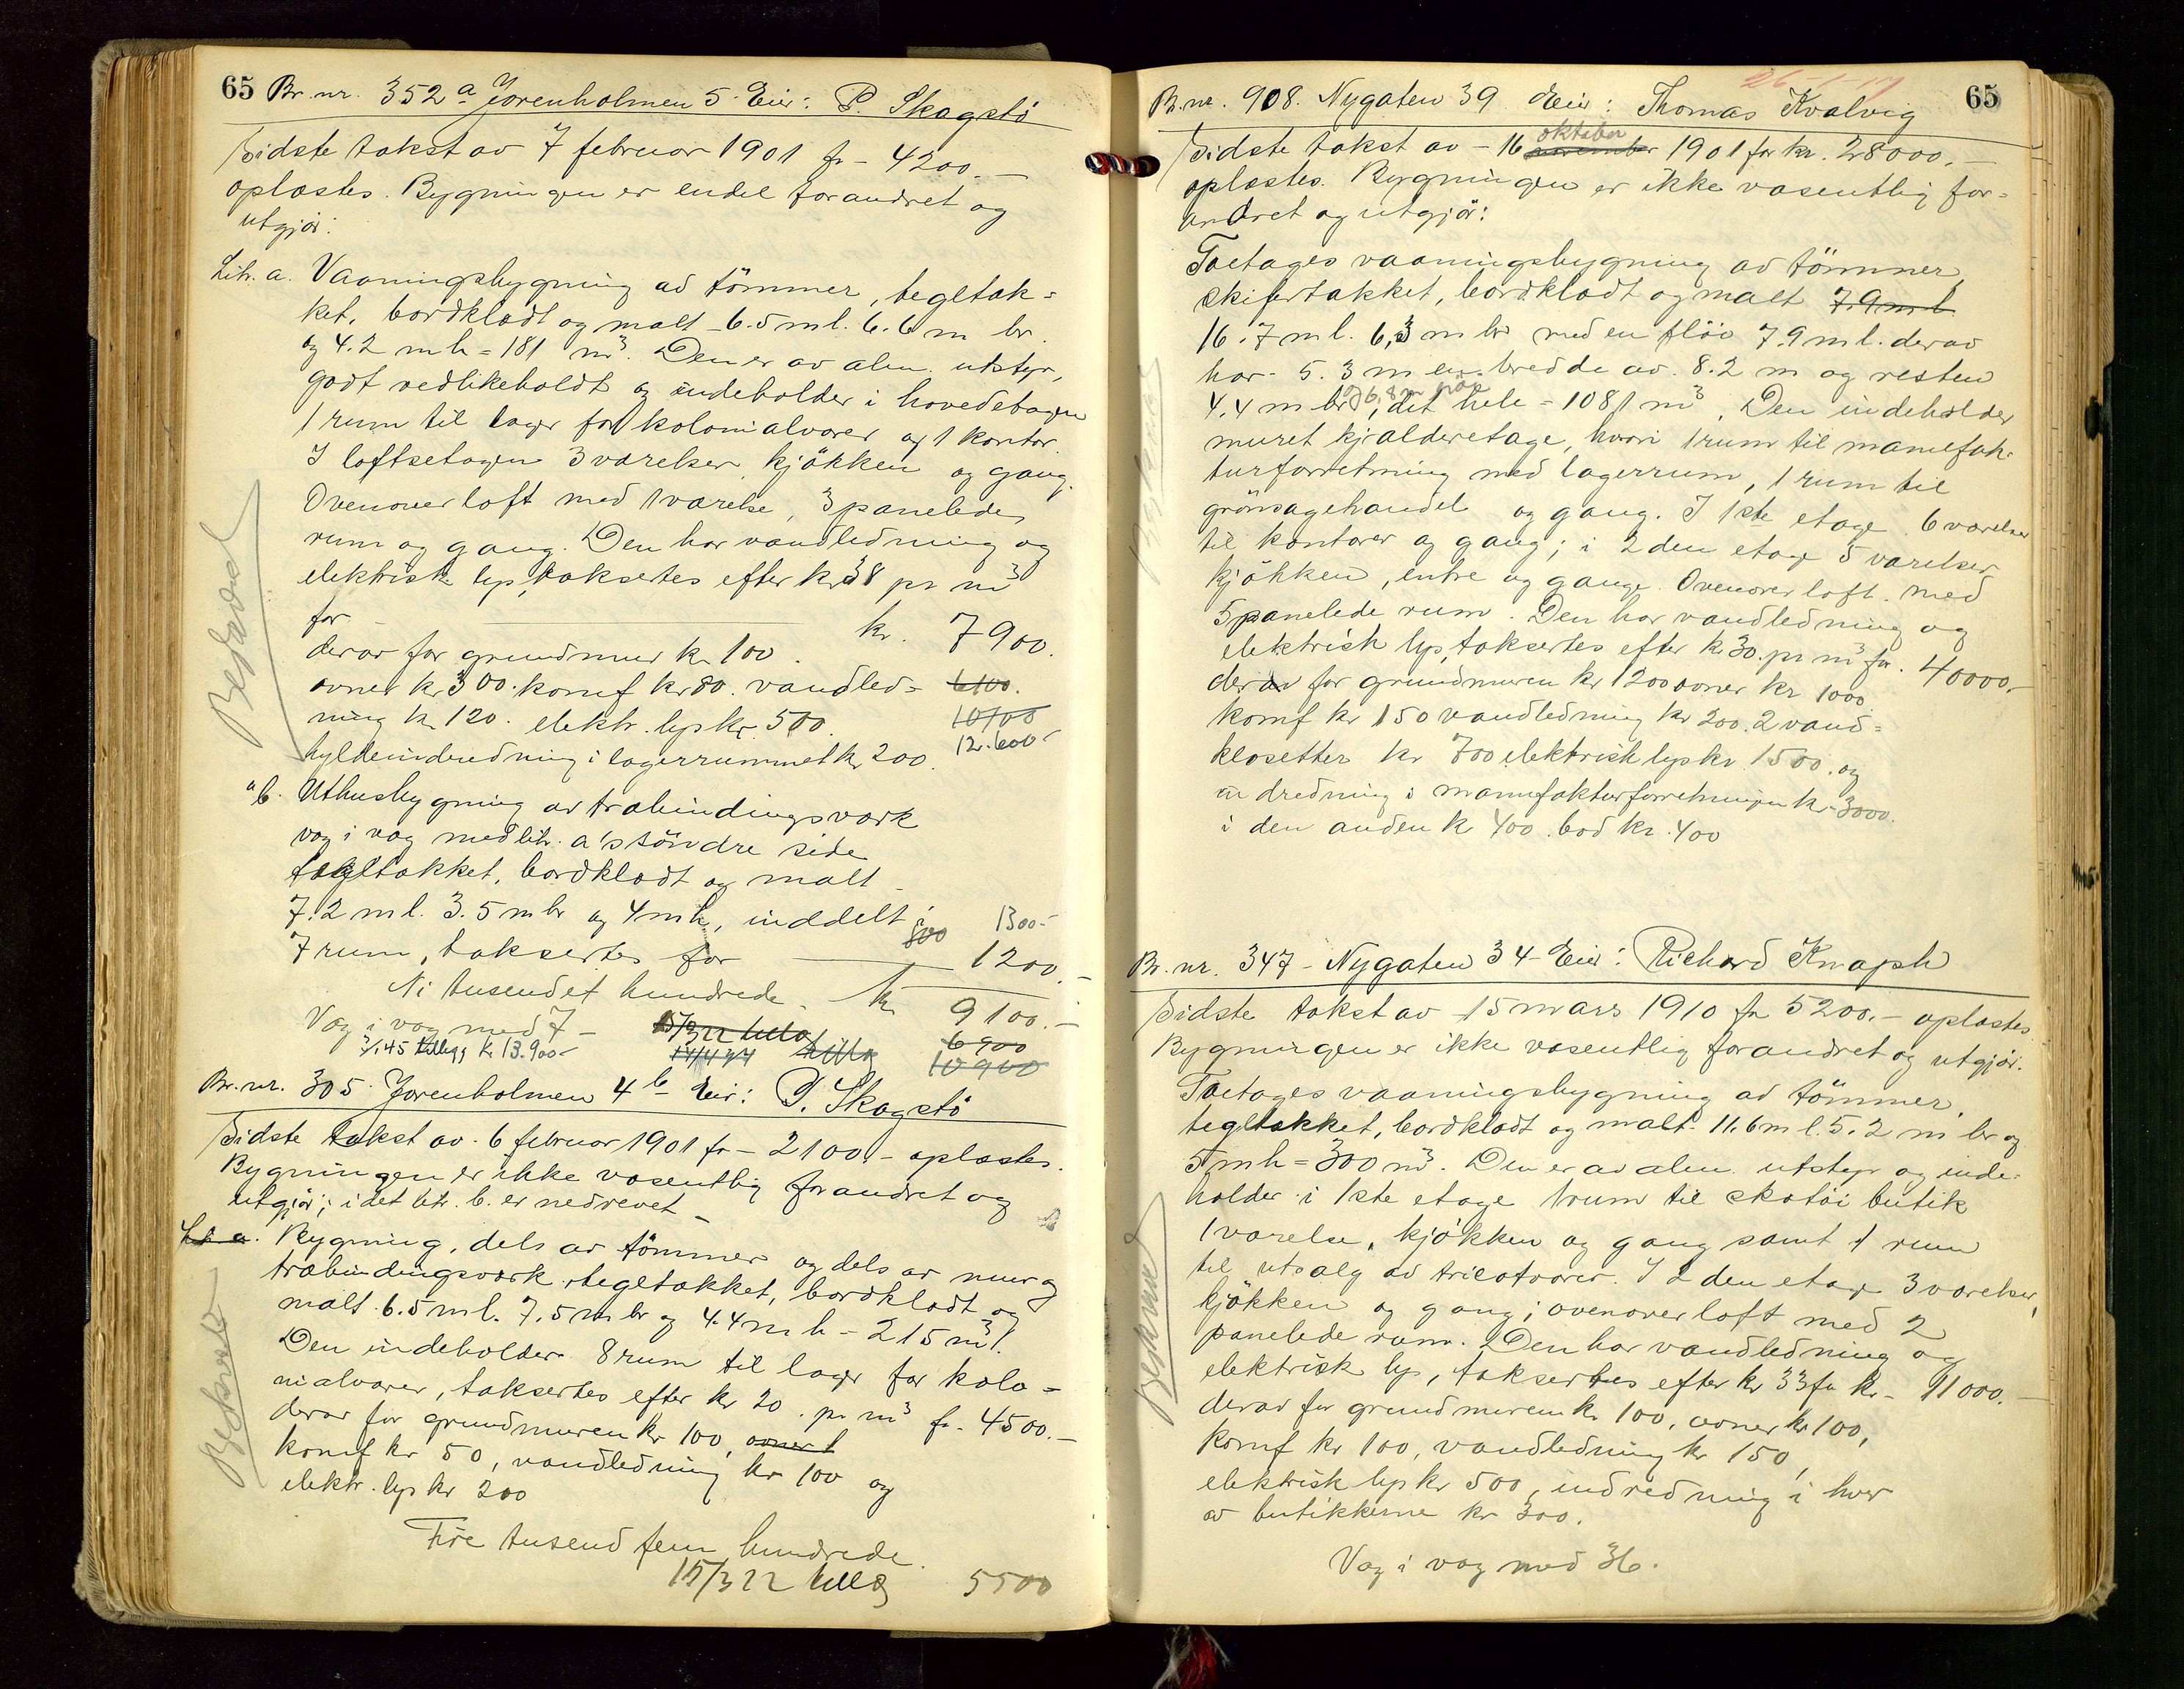 65 Br. nr. 352a Jorenholmen 5 Eier: P. Skagstö
Sidste takst av 7 februar 1901 fr - 4200.-
oplæstes. Bygningen er endel forandret og
utgjör:
Litr. a. Vaaningsbygning av tömmer, tegltæk-
ket, bordklædt og malt - 6.5 m l. 6.6 m br.
og 4.2 m h = 181 m3. Den er av alm. utstyr,
godt vedlikeholdt og indeholder i hovedetagen
1 rum til lager for kolonialvarer og 1 kontor.
I loftsetagen 3 værelser, kjökken og gang.
Ovenover loft med 1 værelse, 3 panelede
rum og gang. Den har vandledning og
elektrisk lys, taksertes efter kr 38 pr m3
for kr. 7900.
derav for grundmur kr 100.
ovner kr 300. komf kr 80. vandled- 6100.
ning kr 120. elektr. lys kr. 500. 10700
12.600-
hyldeindredning i lagerrummet kr 200.
" b. Uthusbygning av træbindingsværk
væg i væg med litr. a's söndre side
tegltækket, bordklædt og malt -
7.2 m l. 3.5 m br og 4 m h, inddelt i
800 1300-
7 rum, taksertes for 1200.-
Ni tusend et hundrede. kr 9100.-
Væg i væg med 7 - 15/3 22 tillæg 6900
3/1 45 tillegg kr 13.900- 10900
Br. nr. 305 Jorenholmen 4b - Eier: P. Skagstö
Sidste takst av 6 februar 1901 fr - 2100.- oplæstes.
Bygningen er ikke væsentlig forandret og
utgjör; i det litr. b. er nedrevet -
Litr a. Bygning, dels av tömmer og dels av mur og
træbindingsværk, tegltækket, bordklædt og
malt. 6.5 m l. 7.5 m br og 4.4 m h - 215 m3.
Den indeholder 8 rum til lager for kolo-
nialvarer, taksertes efter kr 20. pr m3 fr. 4500.-
derav for grundmuren kr 100, ovner 1
komf kr 50, vandledning kr 100 og
elektr. lys kr 200
Fire tusend fem hundrede.
15/3 22 tillæg 5500
Beskrevet
65
26-1-17
Br. nr. 908. Nygaten 39 Eier: Thomas Kvalvig
oktober
Sidste takst av - 16 november 1901 for kr. 28000.-
oplæstes. Bygningen er ikke væsentlig for-
andret og utgjör:
Toetages vaaningsbygning av tömmer,
skifertækket, bordklædt og malt 7.9 m l.
16.7 m l. 6,3 m br med en flöi 7.9 m l. derav
har 5.3 m en bredde av 8.2 m og resten
og 6,8 m höi
4.4 m br, det hele = 1081 m3. Den indeholder
muret kjælderetage, hvori 1 rum til manufak-
turforretning med lagerrum, 1 rum til
grönsagehandel og gang. I 1ste etage 6 værelser
til kontorer og gang; i 2den etage 5 værelser,
kjökken, entre og gange. Ovenover loft med
5 panelede rum. Den har vandledning og
elektrisk lys, taksertes efter kr 30. pr m3 fr. 40000.-
derav for grundmuren kr 1200 ovner kr 1000
komf kr 150 vandledning kr 200. 2 vand-
klosetter kr 700 elektrisk lys kr 1500. og
indredning i manufakturforretningen kr 3000.
i den anden kr 400. bod kr. 400
Br. nr. 347 - Nygaten 34 - Eier: Richard Knaph
Sidste takst av 15 mars 1910 fr 5200.- oplæstes
Bygningen er ikke væsentlig forandret og utgjör.
Toetages vaaningsbygning av tömmer,
tegltækket, bordklædt og malt. 11.6 m l. 5.2 m br og
5 m h = 300 m3. Den er av alm. utstyr og inde-
holder i 1ste etage 1 rum til skotöi butik
1 værelse, kjökken og gang samt 1 rum
til utsalg av tricotvarer. I 2den etage 3 værelser,
kjökken og gang; ovenover loft med 2
panelede rum. Den har vandledning og
elektrisk lys, taksertes efter kr 33 fr kr. 11000.-
derav for grundmuren kr 100, ovner kr 100,
komf kr 100, vandledning kr 150,
elektrisk lys kr 500, indredning i hver
av butikkerne kr 300.
Væg i væg med 36.
Beskrevet